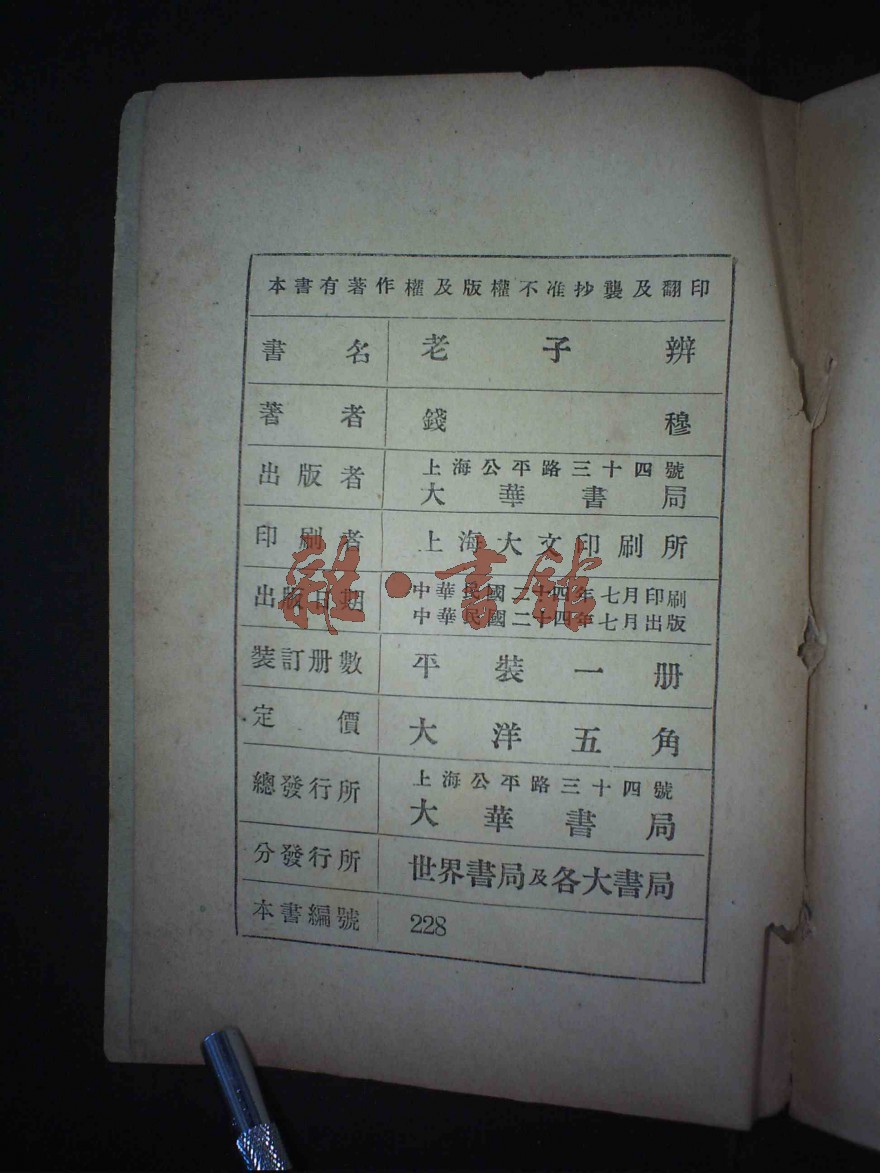 本書有著作權及版權不准抄襲及翻印
書名 老子辨
著者 錢穆
出版者 上海公平路三十四號
大華書局
印刷者 上海大文印刷所
出版日期 中華民國二十四年七月印刷
中華民國二十四年七月出版
裝訂册數 平裝一册
定價 大洋五角
總發行所 上海公平路三十四號
大華書局
分發行所 世界書局及各大書局
本書編號 228
雜·書館